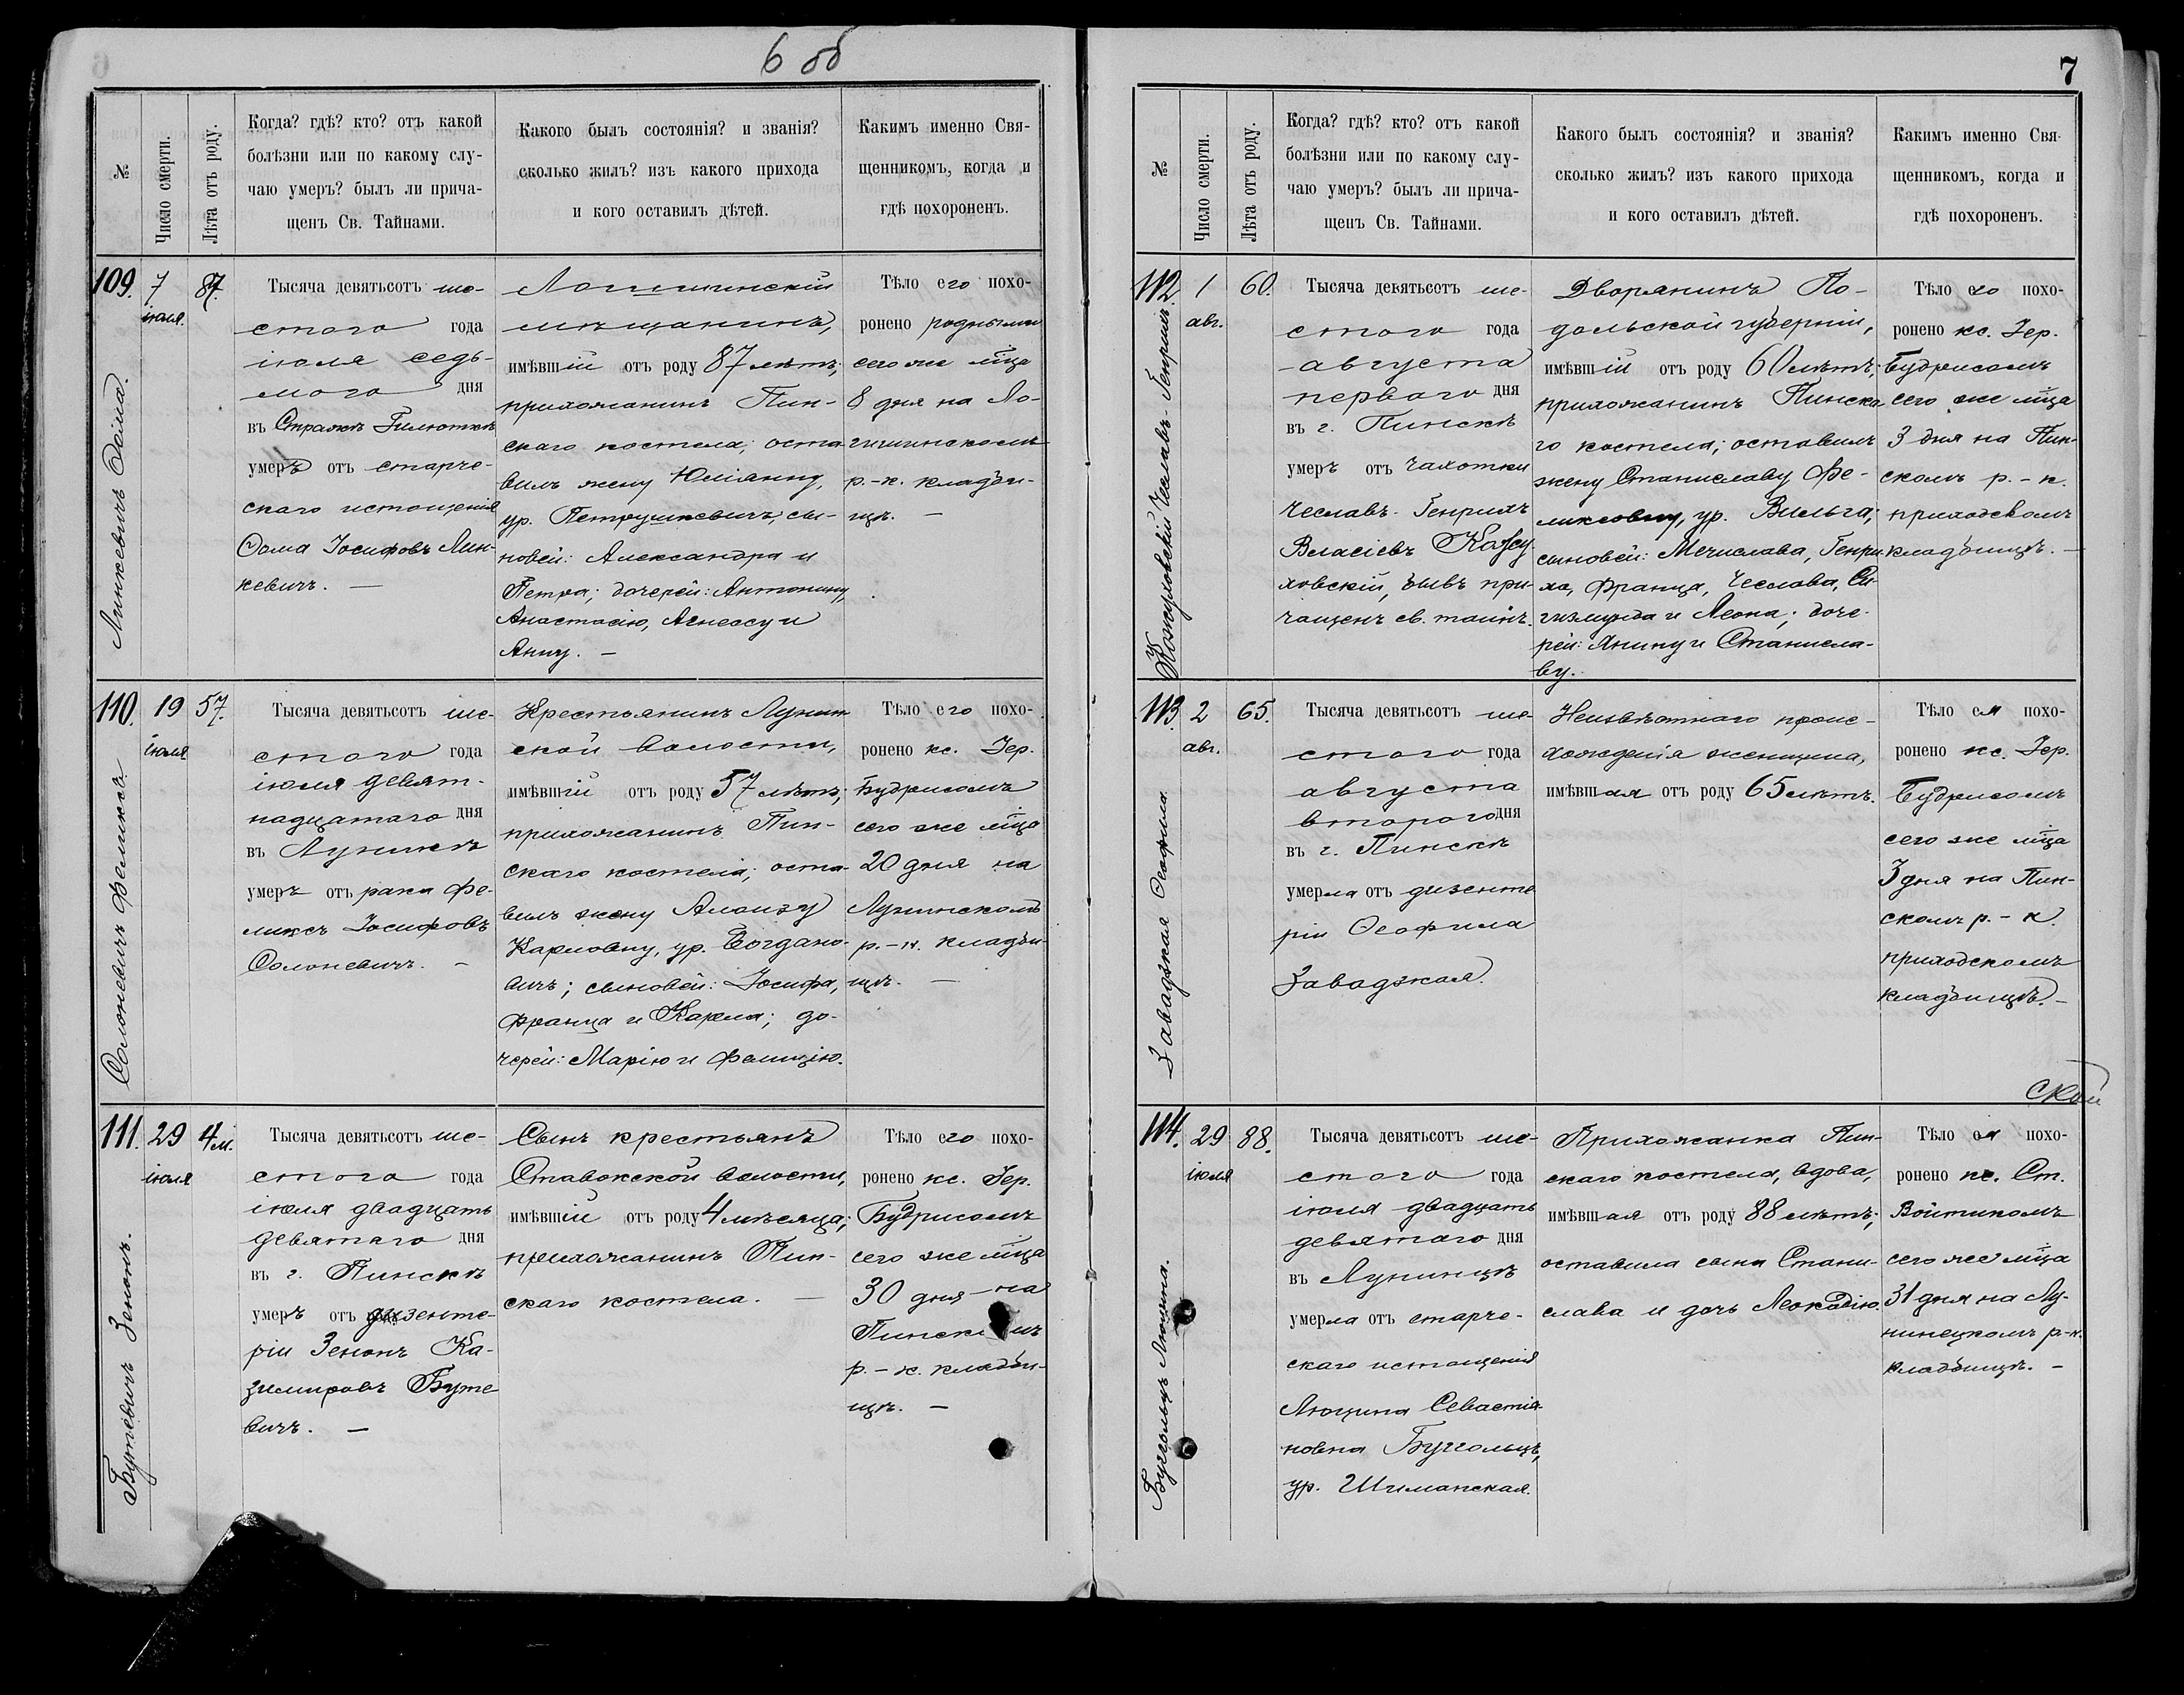 6 об
№
Число смерти.
Лѣта отъ роду.
Когда? гдѣ? кто? отъ какой
болѣзни или по какому слу-
чаю умеръ? былъ ли прича-
щенъ Св. Тайнами.
Какого былъ состоянія? и званія?
сколько жилъ? изъ какого прихода
и кого оставилъ дѣтей.
Какимъ именно Свя-
щенникомъ, когда и
гдѣ похороненъ.
109.
Линкевичъ Ѳома.
7
іюля.
87.
Тысяча девятьсотъ ше-
стого года
іюля седь-
мого дня
въ Стражѣ
умеръ отъ старче-
скаго истощенія
Ѳома Іосифовъ Лин-
кевичъ. —
мѣщанинъ,
имѣвшій отъ роду 87 лѣтъ;
прихожанинъ Пин-
скаго костела; оста-
вилъ жену Юліанну,
ур. Петрушкевичъ; сы-
новей: Александра и
Петра; дочерей: Антонину,
Анастасію, Агнессу и
Анну. —
Тѣло его похо-
ронено родными
сего же мѣца
8 дня на Ло-
гишинскомъ
р.-к. кладби-
щѣ. —
110.
Солоневичъ Феликсъ.
19
іюля
57.
Тысяча девятьсотъ ше-
стого года
іюля девят-
надцатаго дня
въ Лунинѣ
умеръ отъ рака Фе-
ликсъ Іосифовъ
Солоневичъ. —
Крестьянинъ Лунин
ской волости,
имѣвшій отъ роду 57 лѣтъ;
прихожанинъ Пин-
скаго костела; оста-
вилъ жену Алоизу
Карловну, ур. Богдано-
вичъ; сыновей: Іосифа,
Франца и Карла; до-
черей: Марію и Фелицію.
Тѣло его похо-
ронено кс. Іер.
Будрисомъ
сего же мѣца
20 дня на
Лунинскомъ
р.-к. кладби-
щѣ. —
111.
Бутевичъ Зенонъ.
29
іюля
4 м.
Тысяча девятьсотъ ше-
стого года
іюля двадцать
девятаго дня
въ г. Пинскѣ
умеръ отъ дизенте-
ріи Зенонъ Ка-
зимировъ Буте
вичъ. —
Сынъ крестьянъ
Ставокской волости,
имѣвшій отъ роду 4 мѣсяца;
прихожанинъ Пин-
скаго костела. —
Тѣло его похо-
ронено кс. Іер.
Будрисомъ
сего же мѣца
30 дня на
Пинскомъ
р.-к. кладби-
щѣ. —
7
№
Число смерти.
Лѣта отъ роду.
Когда? гдѣ? кто? отъ какой
болѣзни или по какому слу-
чаю умеръ? былъ ли прича-
щенъ Св. Тайнами.
Какого былъ состоянія? и званія?
сколько жилъ? изъ какого прихода
и кого оставилъ дѣтей.
Какимъ именно Свя-
щенникомъ, когда и
гдѣ похороненъ.
112.
Кожуховскій Чеславъ-Генрихъ
1
авг.
60.
Тысяча девятьсотъ ше-
стого года
августа
перваго дня
въ г. Пинскѣ
умеръ отъ чахотки
Чеславъ-Генрихъ
Власіевъ Кожу
ховскій, бывъ при-
чащенъ св. таинъ.
Дворянинъ По-
дольской губерніи,
имѣвшій отъ роду 60 лѣтъ;
прихожанинъ Пинска
го костела; оставилъ
жену Станиславу Фе-
ликсовну, ур. Вильга;
сыновей: Мечислава, Генри
ха, Франца, Чеслава, Си
гизмунда и Леона; доче-
рей: Янину и Станисла-
ву.
Тѣло его похо-
ронено кс. Іер.
Будрисомъ
сего же мѣца
3 дня на Пин-
скомъ р.-к.
приходскомъ
кладбищѣ. —
113.
Завадзкая Ѳеофила.
2
авг.
65.
Тысяча девятьсотъ ше-
стого года
августа
второго дня
въ г. Пинскѣ
умерла отъ дизенте
ріи Ѳеофила
Завадзкая.
Неизвѣстнаго проис-
хожденія женщина,
имѣвшая отъ роду 65 лѣтъ.
Тѣло ея похо-
ронено кс. Іер.
Будрисомъ
сего же мѣца
3 дня на Пин-
скомъ р.-к.
приходскомъ
кладбищѣ. —
114.
Бухгольцъ Люцина.
29
іюля
88.
Тысяча девятьсотъ ше-
стого года
іюля двадцать
девятаго дня
въ Лунинцѣ
умерла отъ старче-
скаго истощенія
Люцина Севастіа
новна Бухгольцъ,
ур. Шиманская.
Прихожанка Пин-
скаго костела, вдова,
имѣвшая отъ роду 88 лѣтъ;
оставила сына Стани-
слава и дочь Леокадію.
Тѣло ея похо-
ронено кс. Ст.
Войтикомъ
сего же мѣца
31 дня на Лу-
нинецкомъ р-к.
кладбищѣ. —